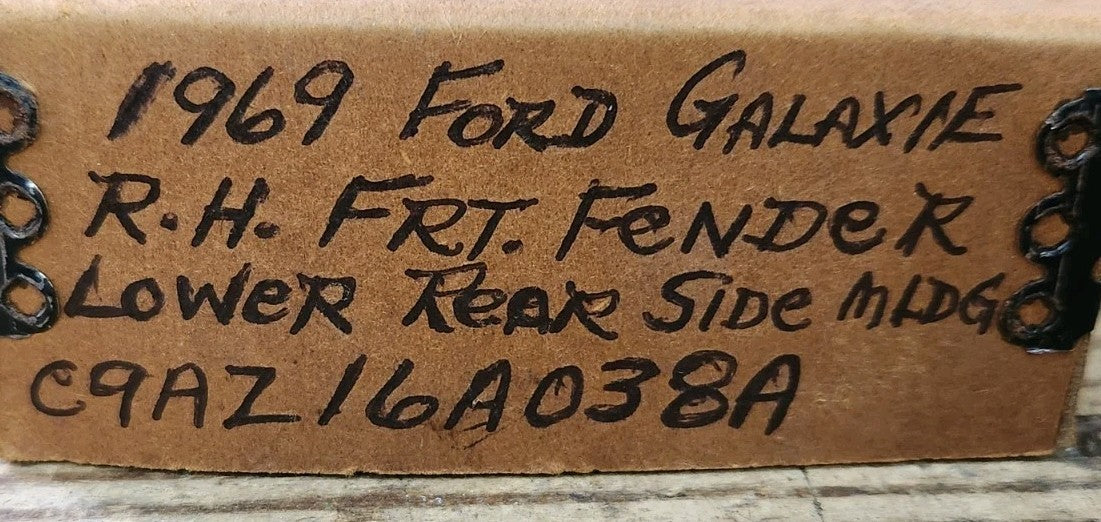 1969 FORD GALAXIE
R.H. FRT. FeNDeR
LOWeR ReAR SIDe MLDG
C9AZ16A038A